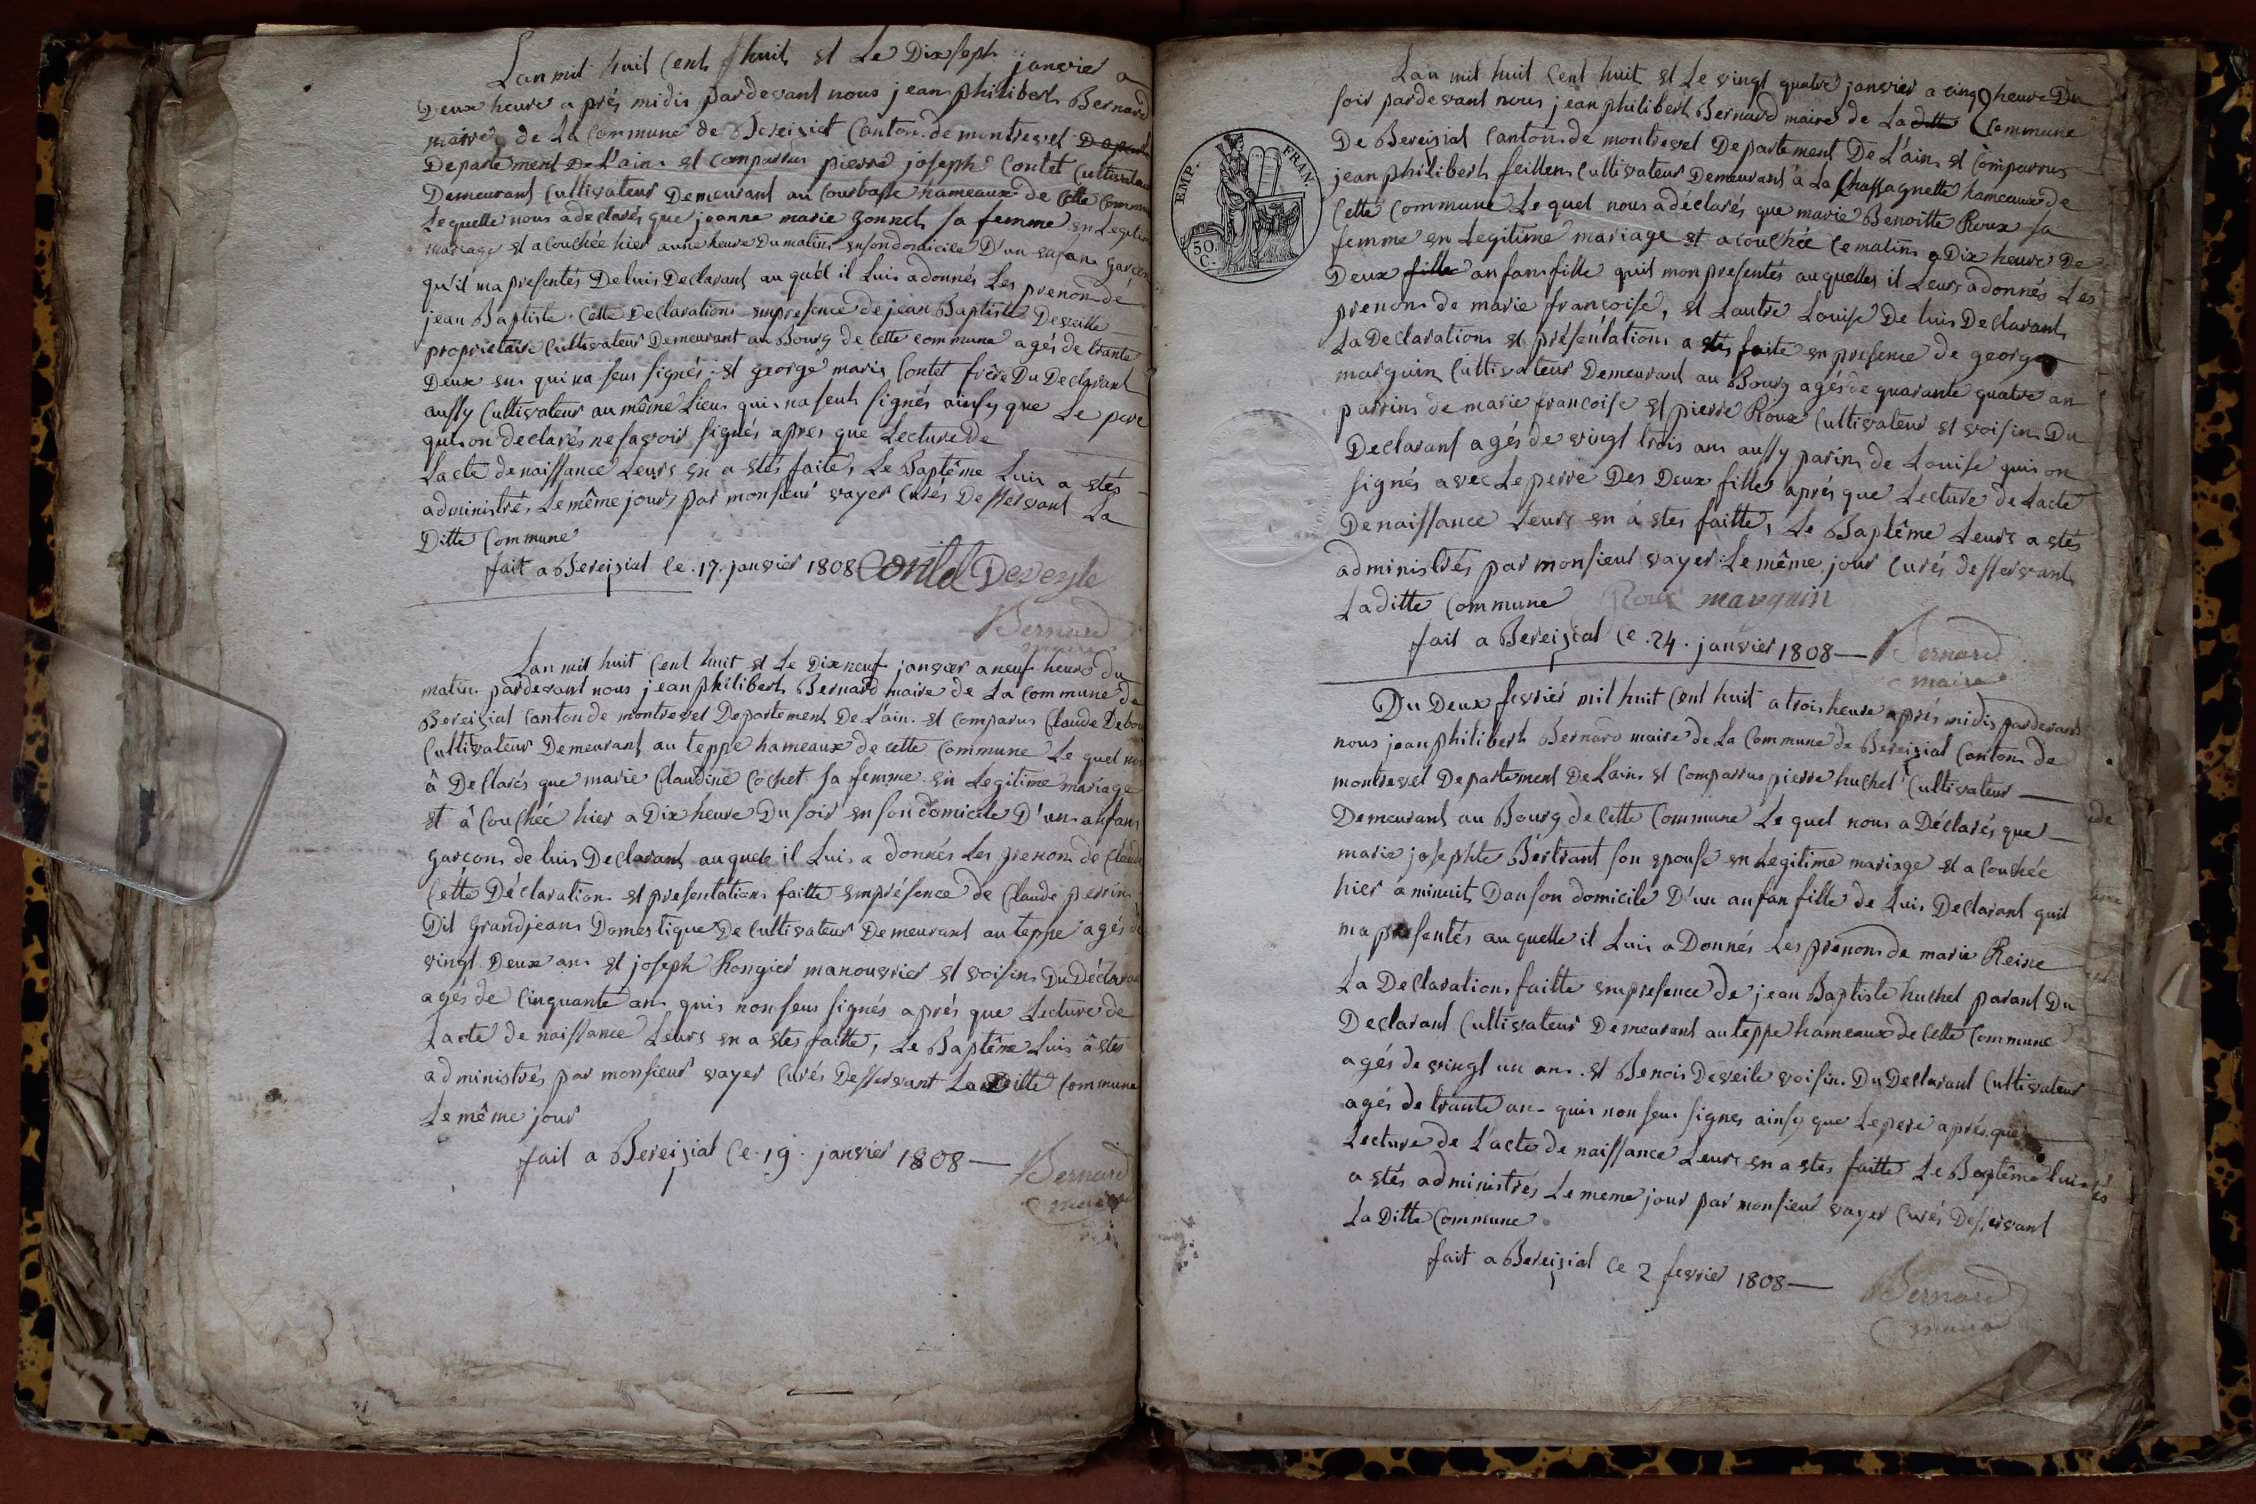 Lan mil huit Cent huit et Le Dix sept janvier a
Deux heure a prés midis pardevant nous jean philibert Bernard
maire de La Commune de Bereiziat Canton de montrevel
Departement De L'ain et Comparrus pierre joseph Contet Cultivateur
Demeurant Cultivateur Demeurant au Courbasse hameaux de Cette Commune
Lequelle nous a declarés que jeanne marie Bonnet sa femme en Legitime
mariage et a couchée hier a une heure Du matin en son domicile D'un enfan garcon
qu'il ma presentés De luis Declarant au quel il Luis a donnés Les prenon de
jean Baptiste. Cette Declaration en presence de jean Baptiste Deveille
proprietaire Cultivateur Demeurant au Bourg de Cette commune agés de trante
Deux an qui na seus signés. et george marie Contet frère Du Declarant
aussy Cultivateur au même Lieu qui na seut signés ainsy que Le pere
qui on declarés ne savoir signés apres que Lecture De
Lacte de naissance Leurs en a etés faite, Le Baptême Luis a etés
administrés Le même jour par monsieur vayer Curés Desservant La
Ditte Commune
fait a Bereiziat Ce .17. janvier 1808 Contet Deveyle
Bernard
maire
Lan mil huit Cent huit et Le Dix neuf janvier a neuf heure du
matin pardevant nous jean philibert Bernard maire de La Commune de
Bereiziat Canton de montrevel Departement De L'ain et Comparus Claude
Cultivateur Demeurant au teppe hameaux de cette Commune Le quel nous
â Declarés que marie Claudine Cochet sa femme en Legitime mariage
et â Couchée hier a Dix heure Du soir en son domicile D'un anfan
garcon de luis Declarant au quele il Luis a donnés Les prenon de Claude
Cette Déclaration et presentation faitte en présence de Claude perrin
Dit grandjean Domestique De Cultivateur Demeurant au teppe agés de
vingt Deux an et joseph Rongier manouvrier et voisin Du Déclarant
agés de Cinquante an quis non seus signés a prés que Lecture de
Lacte de naissance Leurs en a etes faitte, Le Baptême Luis â etes
administrés par monsieur vayer Curés Desservant La Ditte Commune
Le même jour
fait a Bereiziat Ce .19. janvier 1808 —
Bernard
maire
EMP. FRAN.
50. C.
Lan mil huit Cent huit et Le vingt quatre janvier a cinq heure Du
soir pardevant nous jean philibert Bernard maire de La ditte Commune
De Bereiziat Canton de montrevel Departement De L'ain et Comparrus
jean philibert feillen Cultivateur Demeurant â La Chassagnette hameaux de
Cette Commune Le quel nous a déclarés que marie Benoitte Roux sa
femme en Legitime mariage et a couchée Ce matin a Dix heure De
Deux fille anfan fille quil mon presentés au quelles il Leurs a donnés Les
prenon de marie francoise, et Lautre Louise De luis Declarant
La Declaration et présentation a etés faite en presence de george
marguin Cultivateur Demeurant au Bourg agés de quarante quatre an
parrin de marie francoise et pierre Roux Cultivateur et voisin Du
Declarant agés de vingt trois an aussy parin de Louise quis on
signés avec Le perre Des Deux fille aprés que Lecture de Lacte
De naissance Leurs en â etes faitte, Le Baptême Leurs a etés
administrés par monsieur vayer Le même jour Curés desservant
La ditte Commune Roux marguin
fait a Bereiziat Ce .24. janvier 1808 — Bernard
maire
Du Deux fevrier mil huit Cent huit a trois heure aprés midis pardevant
nous jean philibert Bérnard maire de La Commune de Bereiziat Canton de
montrevel Departement De L'ain et Comparrus pierre huchet Cultivateur —
Demeurant au Bourg de Cette Commune Le quel nous a Déclarés que —
marie josephte Bértrant son epouse en Legitime mariage et a Couchée
hier a minuit Dan son domicile D'un anfan fille de Luis Declarant quil
ma presentés au quelle il Luis a Donnés Les prenon de marie Reine
La Declaration faitte en presence de jean Baptiste huchet parant Du
Declarant Cultivateur Demeurant au teppe hameaux de Cette Commune
agés de vingt un an. et Benois Deveile voisin Du Declarant Cultivateur
agés de trante an quis non seu signes ainsy que Le pere aprés que
Lecture de L'acte de naissance Leurs en a etes faitte Le Baptême luis
a etés administrés Le meme jour par monsieur vayer Curés Desservant
La Ditte Commune
fait a Bereiziat Ce 2 fevrier 1808 —
Bernard
maire